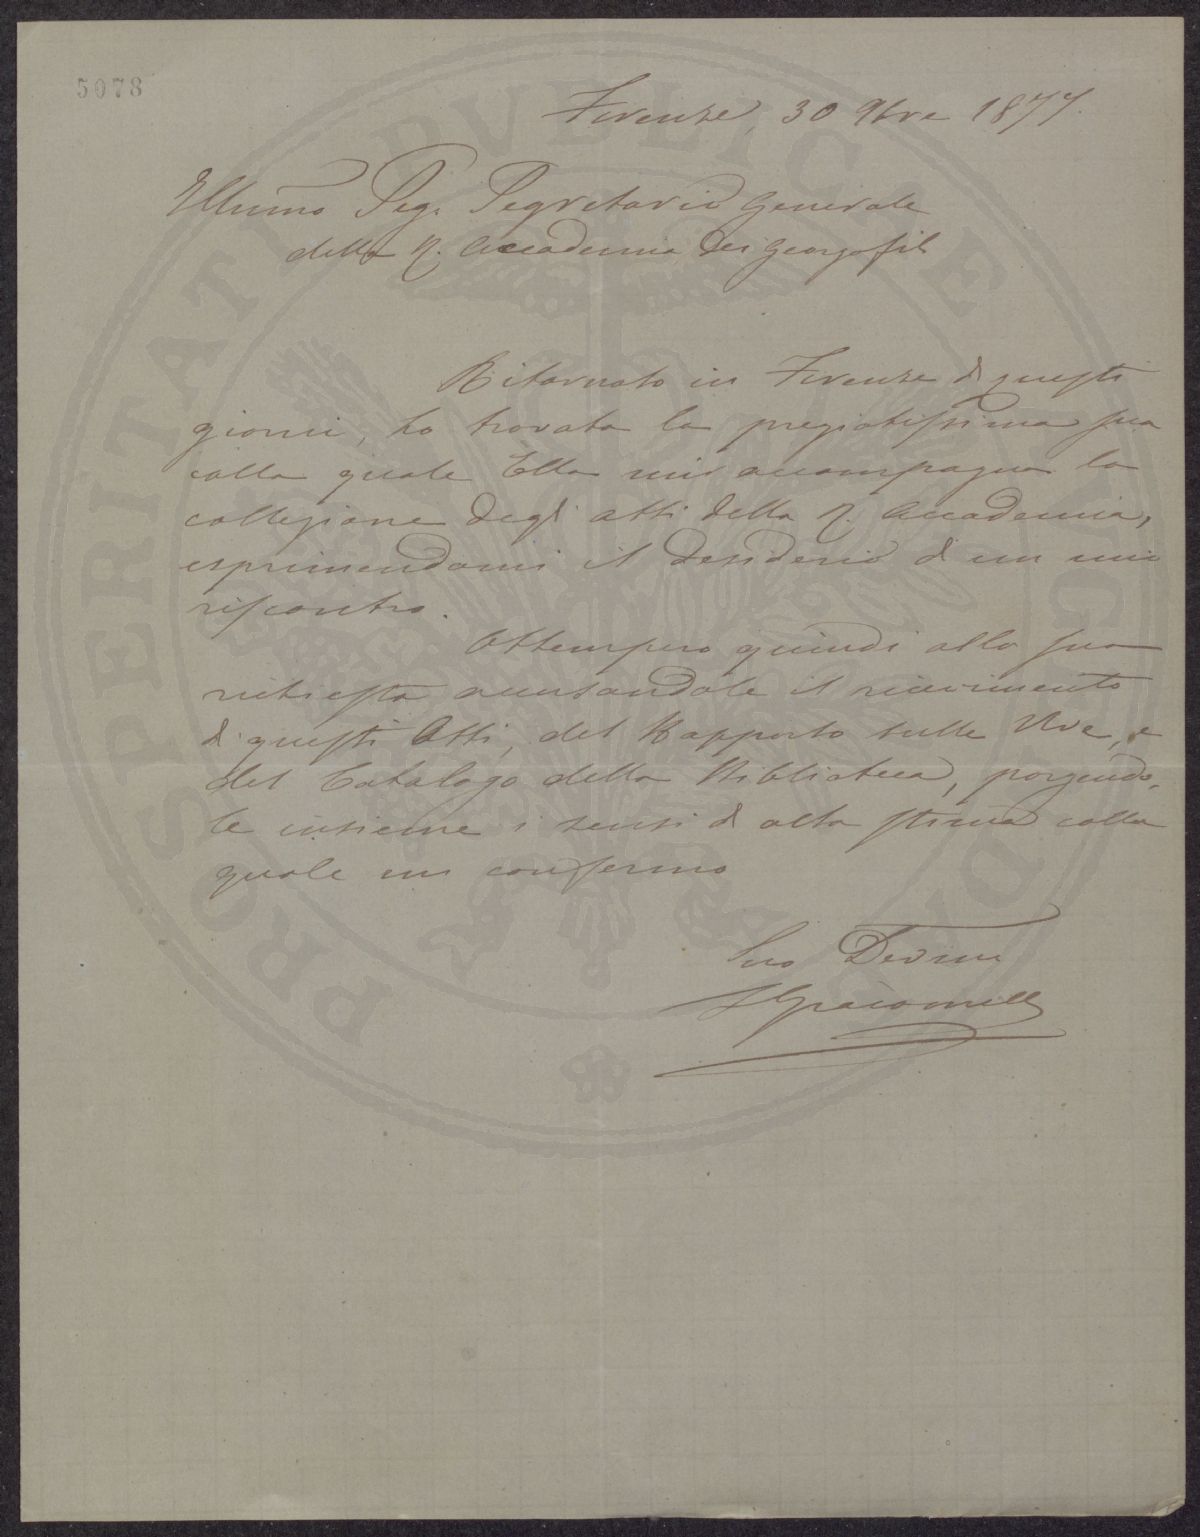 5078
Firenze, 30 9bre 1877.
Illumo Sig. Segretario Generale
della R. Accademia dei Georgofili
Ritornato in Firenze di questi
giorni, ho trovata la pregiatissima sua
colla quale Ella mi accompagna la
collezione degli atti della R. Accademia,
esprimendomi il desiderio di un mio
riscontro.
Ottempero quindi alla sua
richiesta accusandole il ricevimento
di questi Atti, del Rapporto sulle Uve, e
del Catalogo della Biblioteca, porgendo-
le insieme i sensi di alta stima colla
quale mi confermo
Suo Devmo
Giacomelli
PROSPERITATI PVBLICAE AVGENDAE